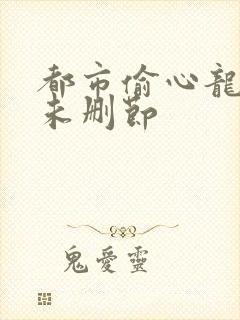 都市偷心龍
未删節
鬼愛靈